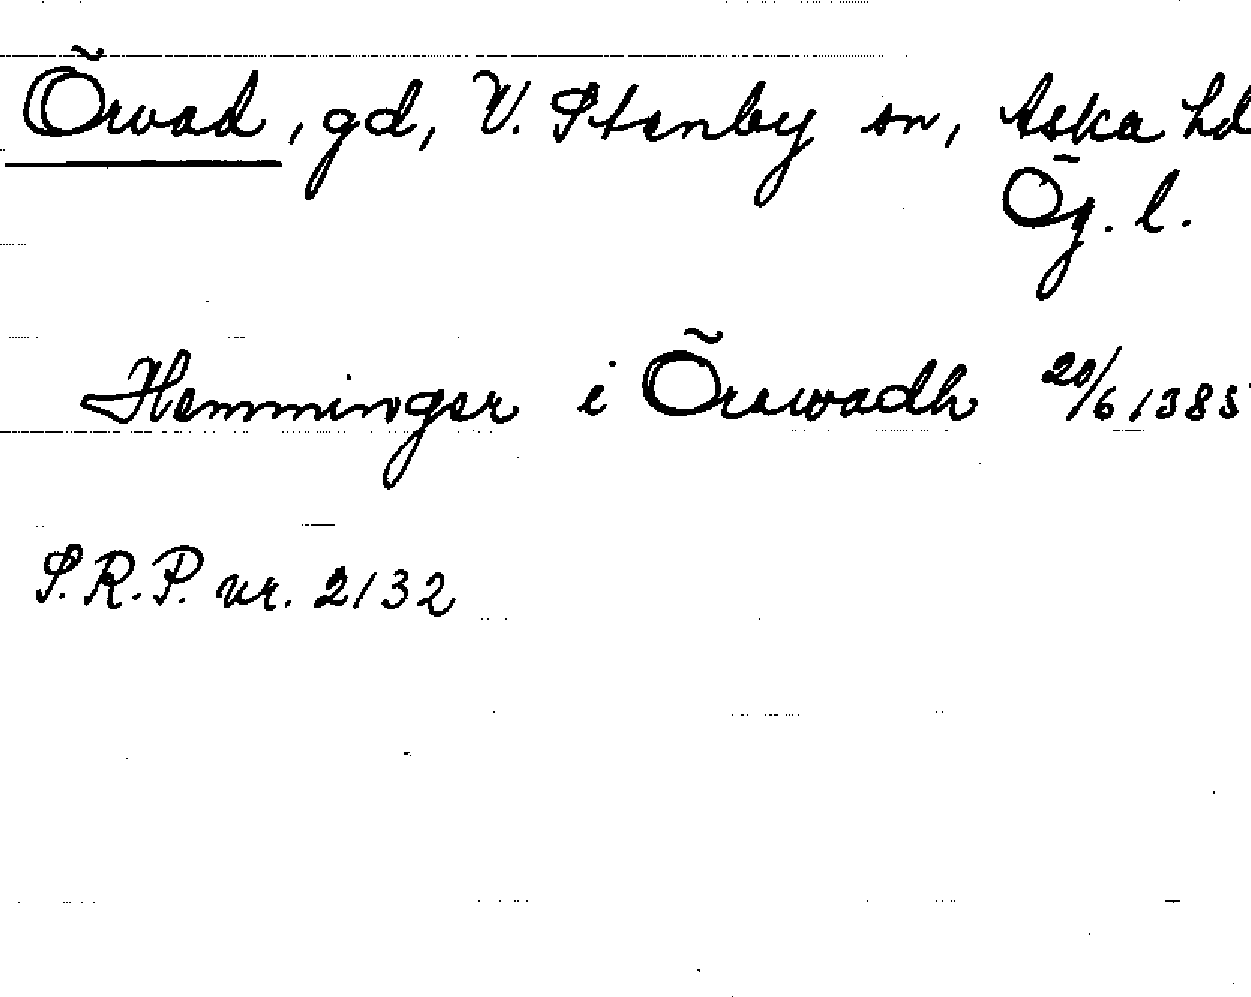 Örvad, gd, V. Stenby sn, Aska hd
Ög. l.
Hemminger i Örawadh 20/6 1385
S.R.P. nr. 2132